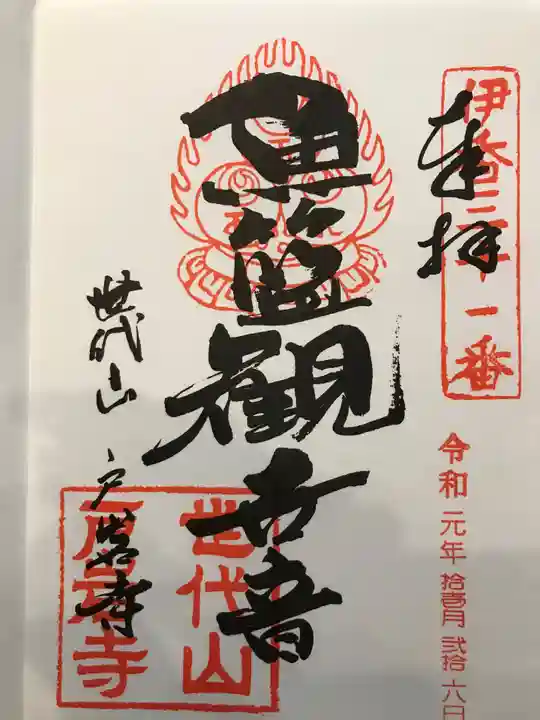 伊香三十一番
奉拝
令和元年 拾壱月 弐拾六日
魚籃観世音
世代山 戸岩寺
世代山
戸岩寺